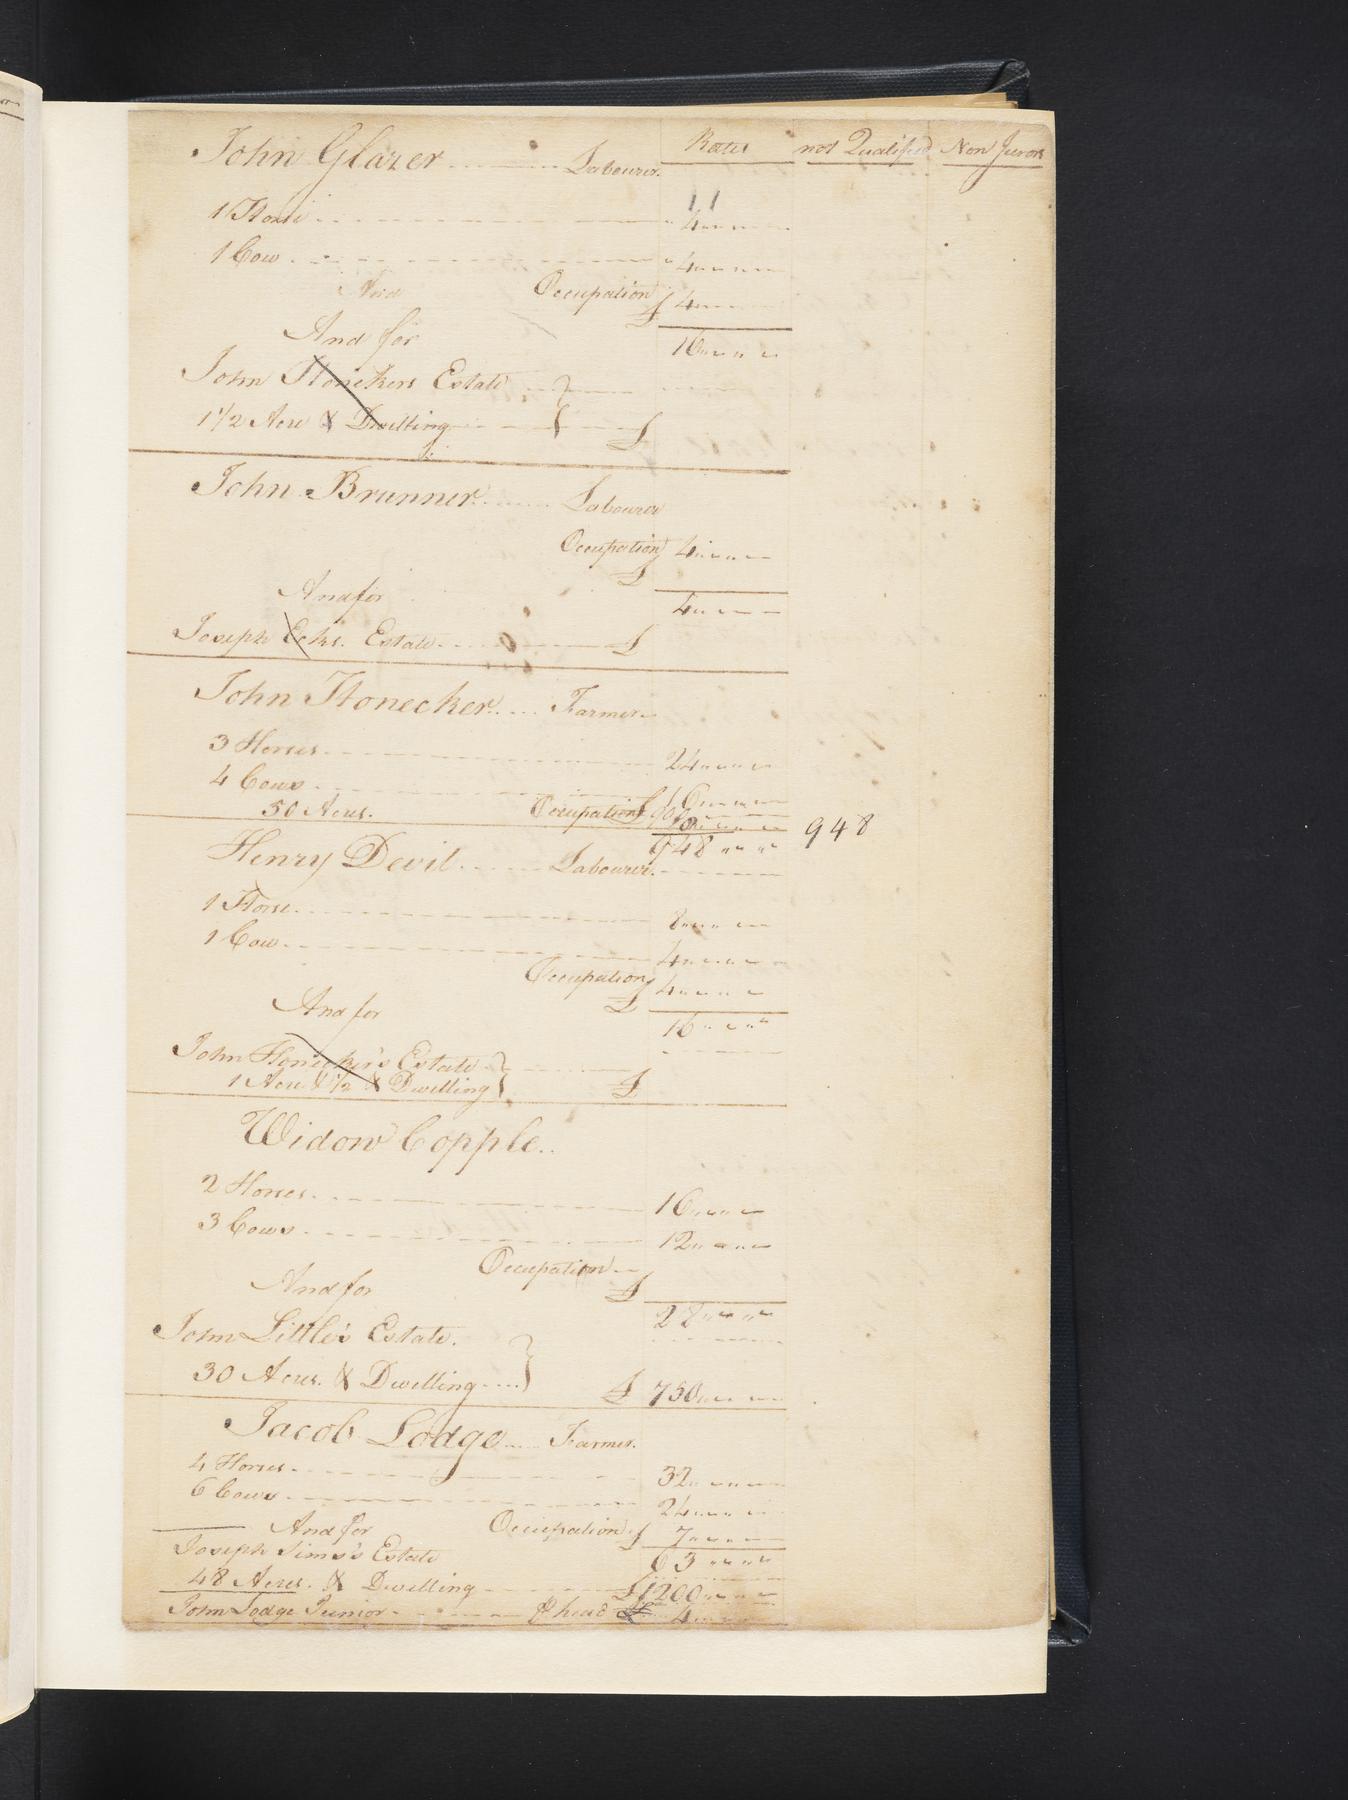 Rates not Qualified Non Jurors
John Glazer Labourer
11
1 Horse 4
1 Cow 4
And Occupation £ 4
And for 16
John Stoneckers Estate
1 1/2 Acre & Dwelling £
John Brunner Labourer
Occupation 4
£
And for 4
Joseph Ecks. Estate £
John Stonecker Farmer
3 Horses 24
4 Cows 16
50 Acres. Occupation £ 900
948 948
Henry Devil Labourer
1 Horse 8
1 Cow 4
Occupation £ 4
And for 16
John Stonecker's Estate
1 Acre & 1/2 & Dwelling £
Widow Copple
2 Horses 16
3 Cows 12
Occupation
And for £
28
John Little's Estate.
30 Acres. & Dwelling £ 750
Jacob Lodge Farmer.
4 Horses 32
6 Cows 24
And for Occupation £ 7
Joseph Sims's Estate 63
48 Acres. & Dwelling £ 1200
John Lodge Junior ⅌ head £ 4